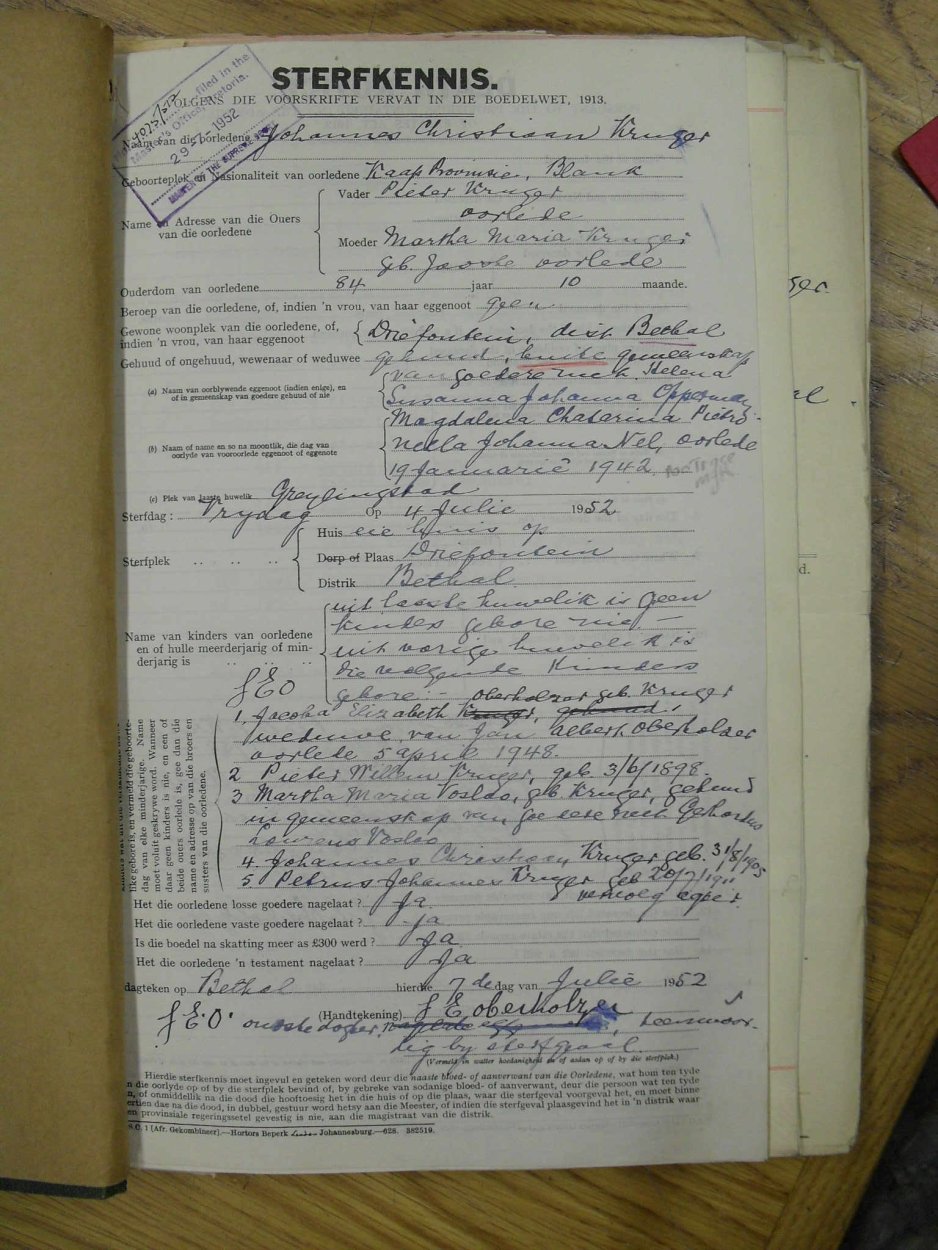 STERFKENNIS.
VOLGENS DIE VOORSKRIFTE VERVAT IN DIE BOEDELWET, 1913.
4075/52 filed in the
Master's Office, Pretoria.
29-7-1952
MASTER OF THE SUPREME COURT
Naam van die oorledene Johannes Christiaan Kruger
Geboorteplek en Nasionaliteit van oorledene Kaap Provinsie, Blank
Name en Adresse van die Ouers van die oorledene
Vader Pieter Kruger
oorlede
Moeder Martha Maria Kruger
geb. Jooste oorlede
Ouderdom van oorledene 84 jaar 10 maande.
Beroep van die oorledene, of, indien 'n vrou, van haar eggenoot geen
Gewone woonplek van die oorledene, of,
indien 'n vrou, van haar eggenoot
Driefontein, dist Bethal
Gehuud of ongehuud, wewenaar of weduwee gehuud, buite gemeenskap
(a) Naam van oorblywende eggenoot (indien enige), en
of in gemeenskap van goedere gehuud of nie
van goedere met Helena
Susanna Johanna Opperman
(b) Naam of name en so na moontlik, die dag van
oorlyde van vooroorlede eggenoot of eggenote
Magdalena Chaterina Pietro-
nella Johanna Nel, oorlede
19 Januarie 1942
(c) Plek van laaste huwelik Greylingstad
Sterfdag : Vrydag Op 4 Julie 1952
Sterfplek
Huis eie huis op
Dorp of Plaas Driefontein
Distrik Bethal
Name van kinders van oorledene
en of hulle meerderjarig of min-
derjarig is
uit laaste huwelik is geen
kinders gebore nie —
uit vorige huwelik is
die volgende kinders
gebore :-
J E O
Oberholzer geb. Kruger
1. Jacoba Elizabeth Kruger, gehuud,
weduwe van Jan Albert Oberholzer
oorlede 5 April 1948.
2 Pieter Willem Kruger, geb. 3/6/1898
3 Martha Maria Vosloo, geb Kruger, gehuud
in gemeenskap van goedere met Gerhardus
Lourens Vosloo
4. Johannes Christiaan Kruger geb. 31/8/1905
5 Petrus Johannes Kruger geb 20/7/1911
vervolg agter.
like gebore is, en vermeld die geboorte-
dag van elke minderjarige. Name
moet voluit geskrywe word. Wanneer
daar geen kinders is nie, en een of
beide ouers oorlede is, gee dan die
name en adresse op van die broers en
susters van die oorledene.
Het die oorledene losse goedere nagelaat ? Ja
Het die oorledene vaste goedere nagelaat ? Ja
Is die boedel na skatting meer as £300 werd ? Ja
Het die oorledene 'n testament nagelaat ? Ja
dagteken op Bethal hierdie 7 de dag van Julie 1952
(Handtekening) J E oberholzer
J. E. O. oudste dogter, teenwoor-
dig by sterfgeval.
(Vermeld in watter hoedanigheid en of aldan op of by die sterfplek.)
Hierdie sterfkennis moet ingevul en geteken word deur die naaste bloed- of aanverwant van die Oorledene, wat hom ten tyde
n die oorlyde op of by die sterfplek bevind of, by gebreke van sodanige bloed- of aanverwant, deur die persoon wat ten tyde
n, of onmiddelik na die dood die hooftoesig het in die huis of op die plaas, waar die sterfgeval voorgeval het, en moet binne
ertien dae na die dood, in dubbel, gestuur word hetsy aan die Meester, of indien die sterfgeval plaasgevind het in 'n distrik waar
en provinsiale regeringssetel gevestig is nie, aan die magistraat van die distrik.
S.C. 1 [Afr. Gekombineer].—Hortors Beperk Johannesburg.—628. 382519.
d.